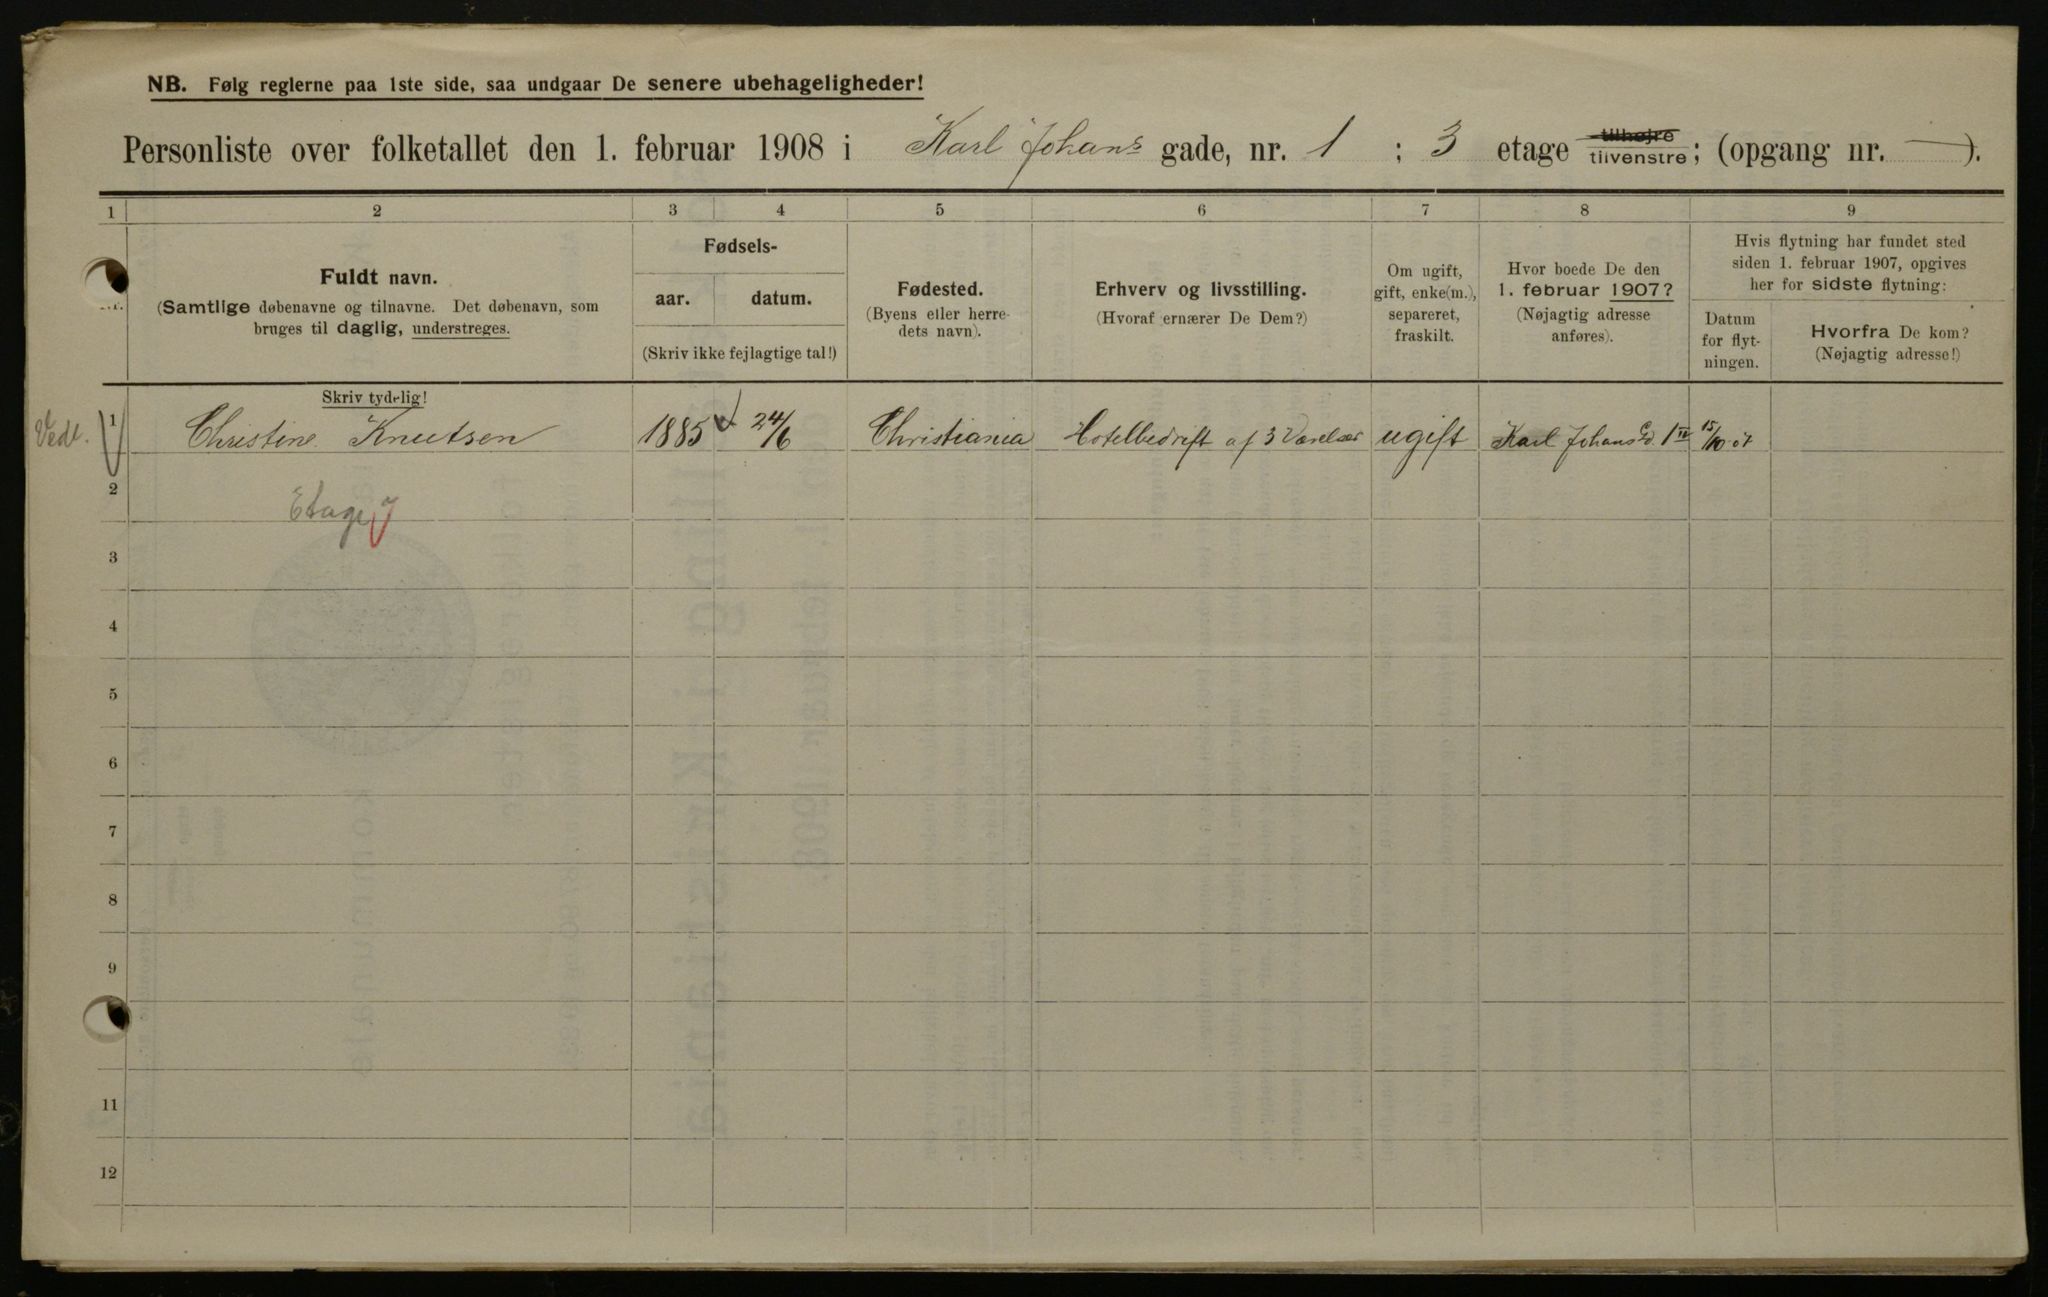 NB. Følg reglerne paa 1ste side, saa undgaar De senere ubehageligheder!
Personliste over folketallet den 1. februar 1908 i Karl Johans gade, nr. 1 ; 3 etage tilhøjre tilvenstre; (opgang nr. — ).
1 2 3 4 5 6 7 8 9
Nr.
Fuldt navn.
(Samtlige døbenavne og tilnavne. Det døbenavn, som
bruges til daglig, understreges.
Skriv tydelig!
Fødsels-
aar. datum.
(Skriv ikke fejlagtige tal!)
Fødested.
(Byens eller herre-
dets navn).
Erhverv og livsstilling.
(Hvoraf ernærer De Dem?)
Om ugift,
gift, enke(m.),
separeret,
fraskilt.
Hvor boede De den
1. februar 1907?
(Nøjagtig adresse
anføres).
Hvis flytning har fundet sted
siden 1. februar 1907, opgives
her for sidste flytning:
Datum
for flyt-
ningen.
Hvorfra De kom?
(Nøjagtig adresse!)
Vedt. 1 Christine Knutsen 1885 24/6 Christiania Hotelbedrift af 3 Værelser ugift Karl Johans Gd. 1 IV 15/10 07
2
Etage
3
4
5
6
7
8
9
11
12